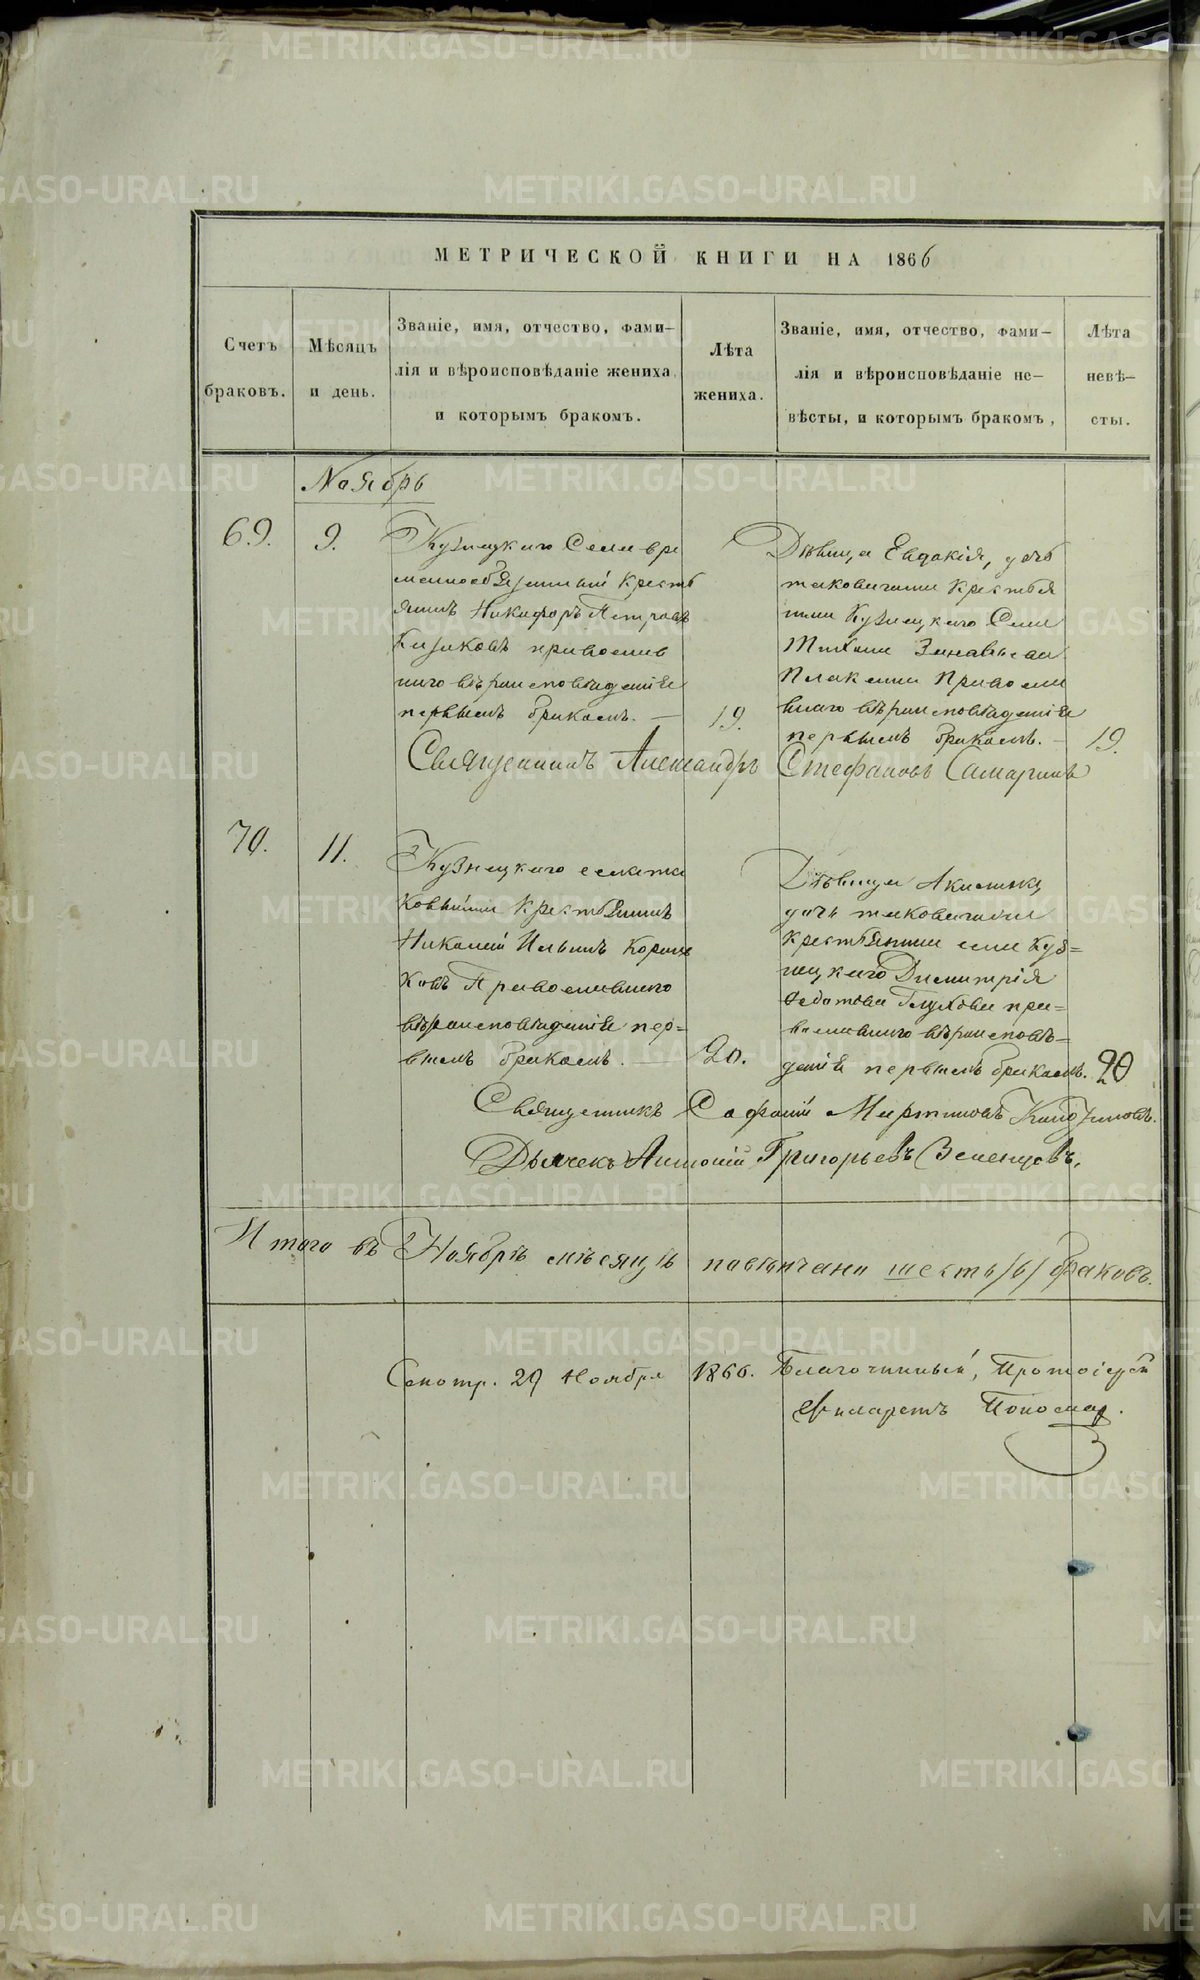 МЕТРИЧЕСКОЙ КНИГИ НА 1866
Счетъ
браковъ.
Мѣсяцъ
и день.
Званіе, имя, отчество, фами-
лія и вѣроисповѣданіе жениха,
и которымъ бракомъ.
Лѣта
жениха.
Званіе, имя, отчество, фами-
лія и вѣроисповѣданіе не-
вѣсты, и которымъ бракомъ,
Лѣта
невѣ-
сты.
Ноябрь
69.
9.
Кузнецкаго Села вре
меннообязанный кресть
янинъ Никифоръ Петровъ
православ
наго вѣроисповѣданія
первымъ бракомъ. —
19.
Дѣвица Евдокія, дочь
таковагоже крестья
нина Кузнецкаго Села
православ
наго вѣроисповѣданія
первымъ бракомъ. —
19.
Священникъ Александръ Стефановъ Самаринъ
70.
11.
Кузнецкаго села та
ковыйже Крестьянинъ
Николай Ильинъ
Православнаго
вѣроисповѣданія пер-
вымъ бракомъ. —
20.
Дѣвица Акилина,
дочь таковагоже
крестьянина села Куз-
нецкаго Димитрія
Федотова Глухова пра-
вославнаго вѣроисповѣ-
данія первымъ бракомъ.
20
Священникъ Софоній Мартиновъ
Дьячекъ Антоній Григорьевъ Земенцовъ.
Итого въ Ноябрѣ мѣсяцѣ повѣнчано шесть /6/ браковъ.
Смотр. 29 Ноября 1866. Благочинный, Протоіерей
Филаретъ Пономар.
METRIKI.GASO-URAL.RU